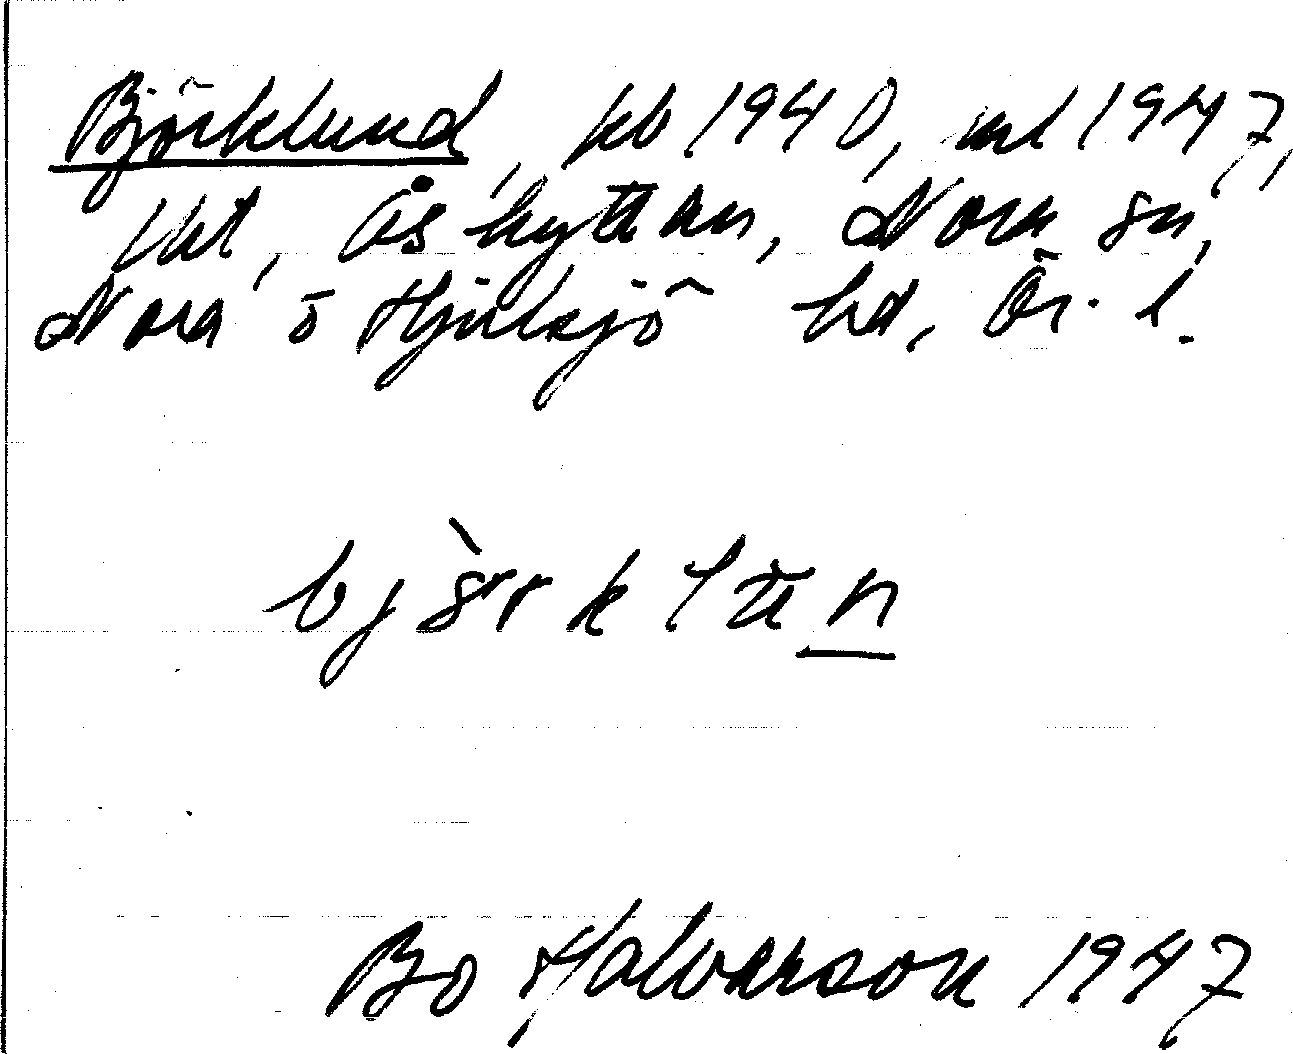 Björklund, jb 1940, ml 1947,
lht, Åshyttan, Nora sn,
Nora o Hjulsjö hd, Ör. l.
björklun
Bo Halvarson 1947